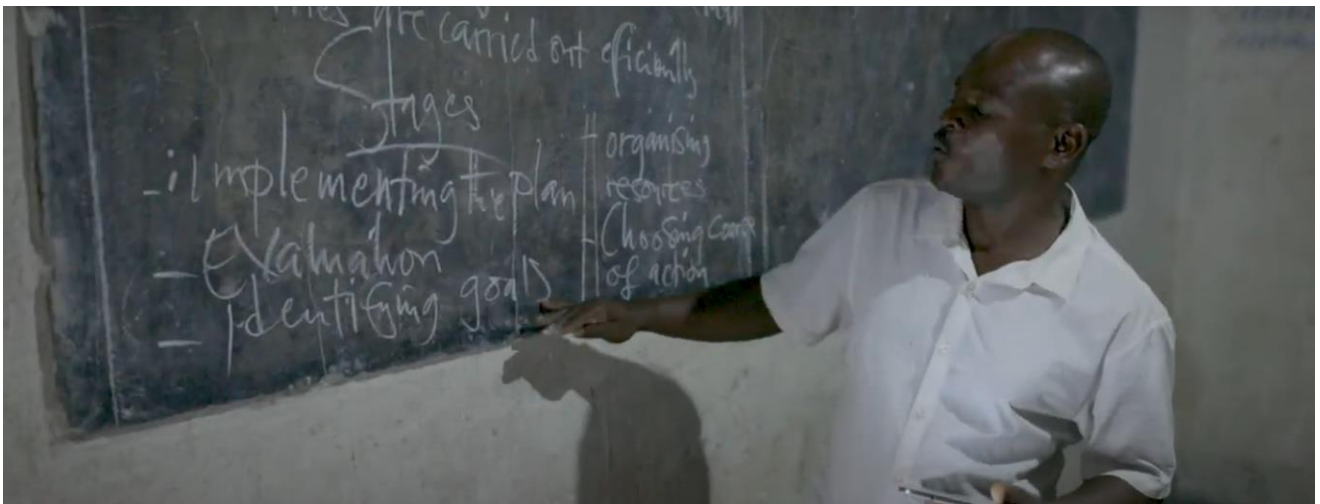 are carried out eficiently
Stages
- i Implementing the plan
- Evaluation
- Identifying goals
- organising
resources
- Choosing course
of action